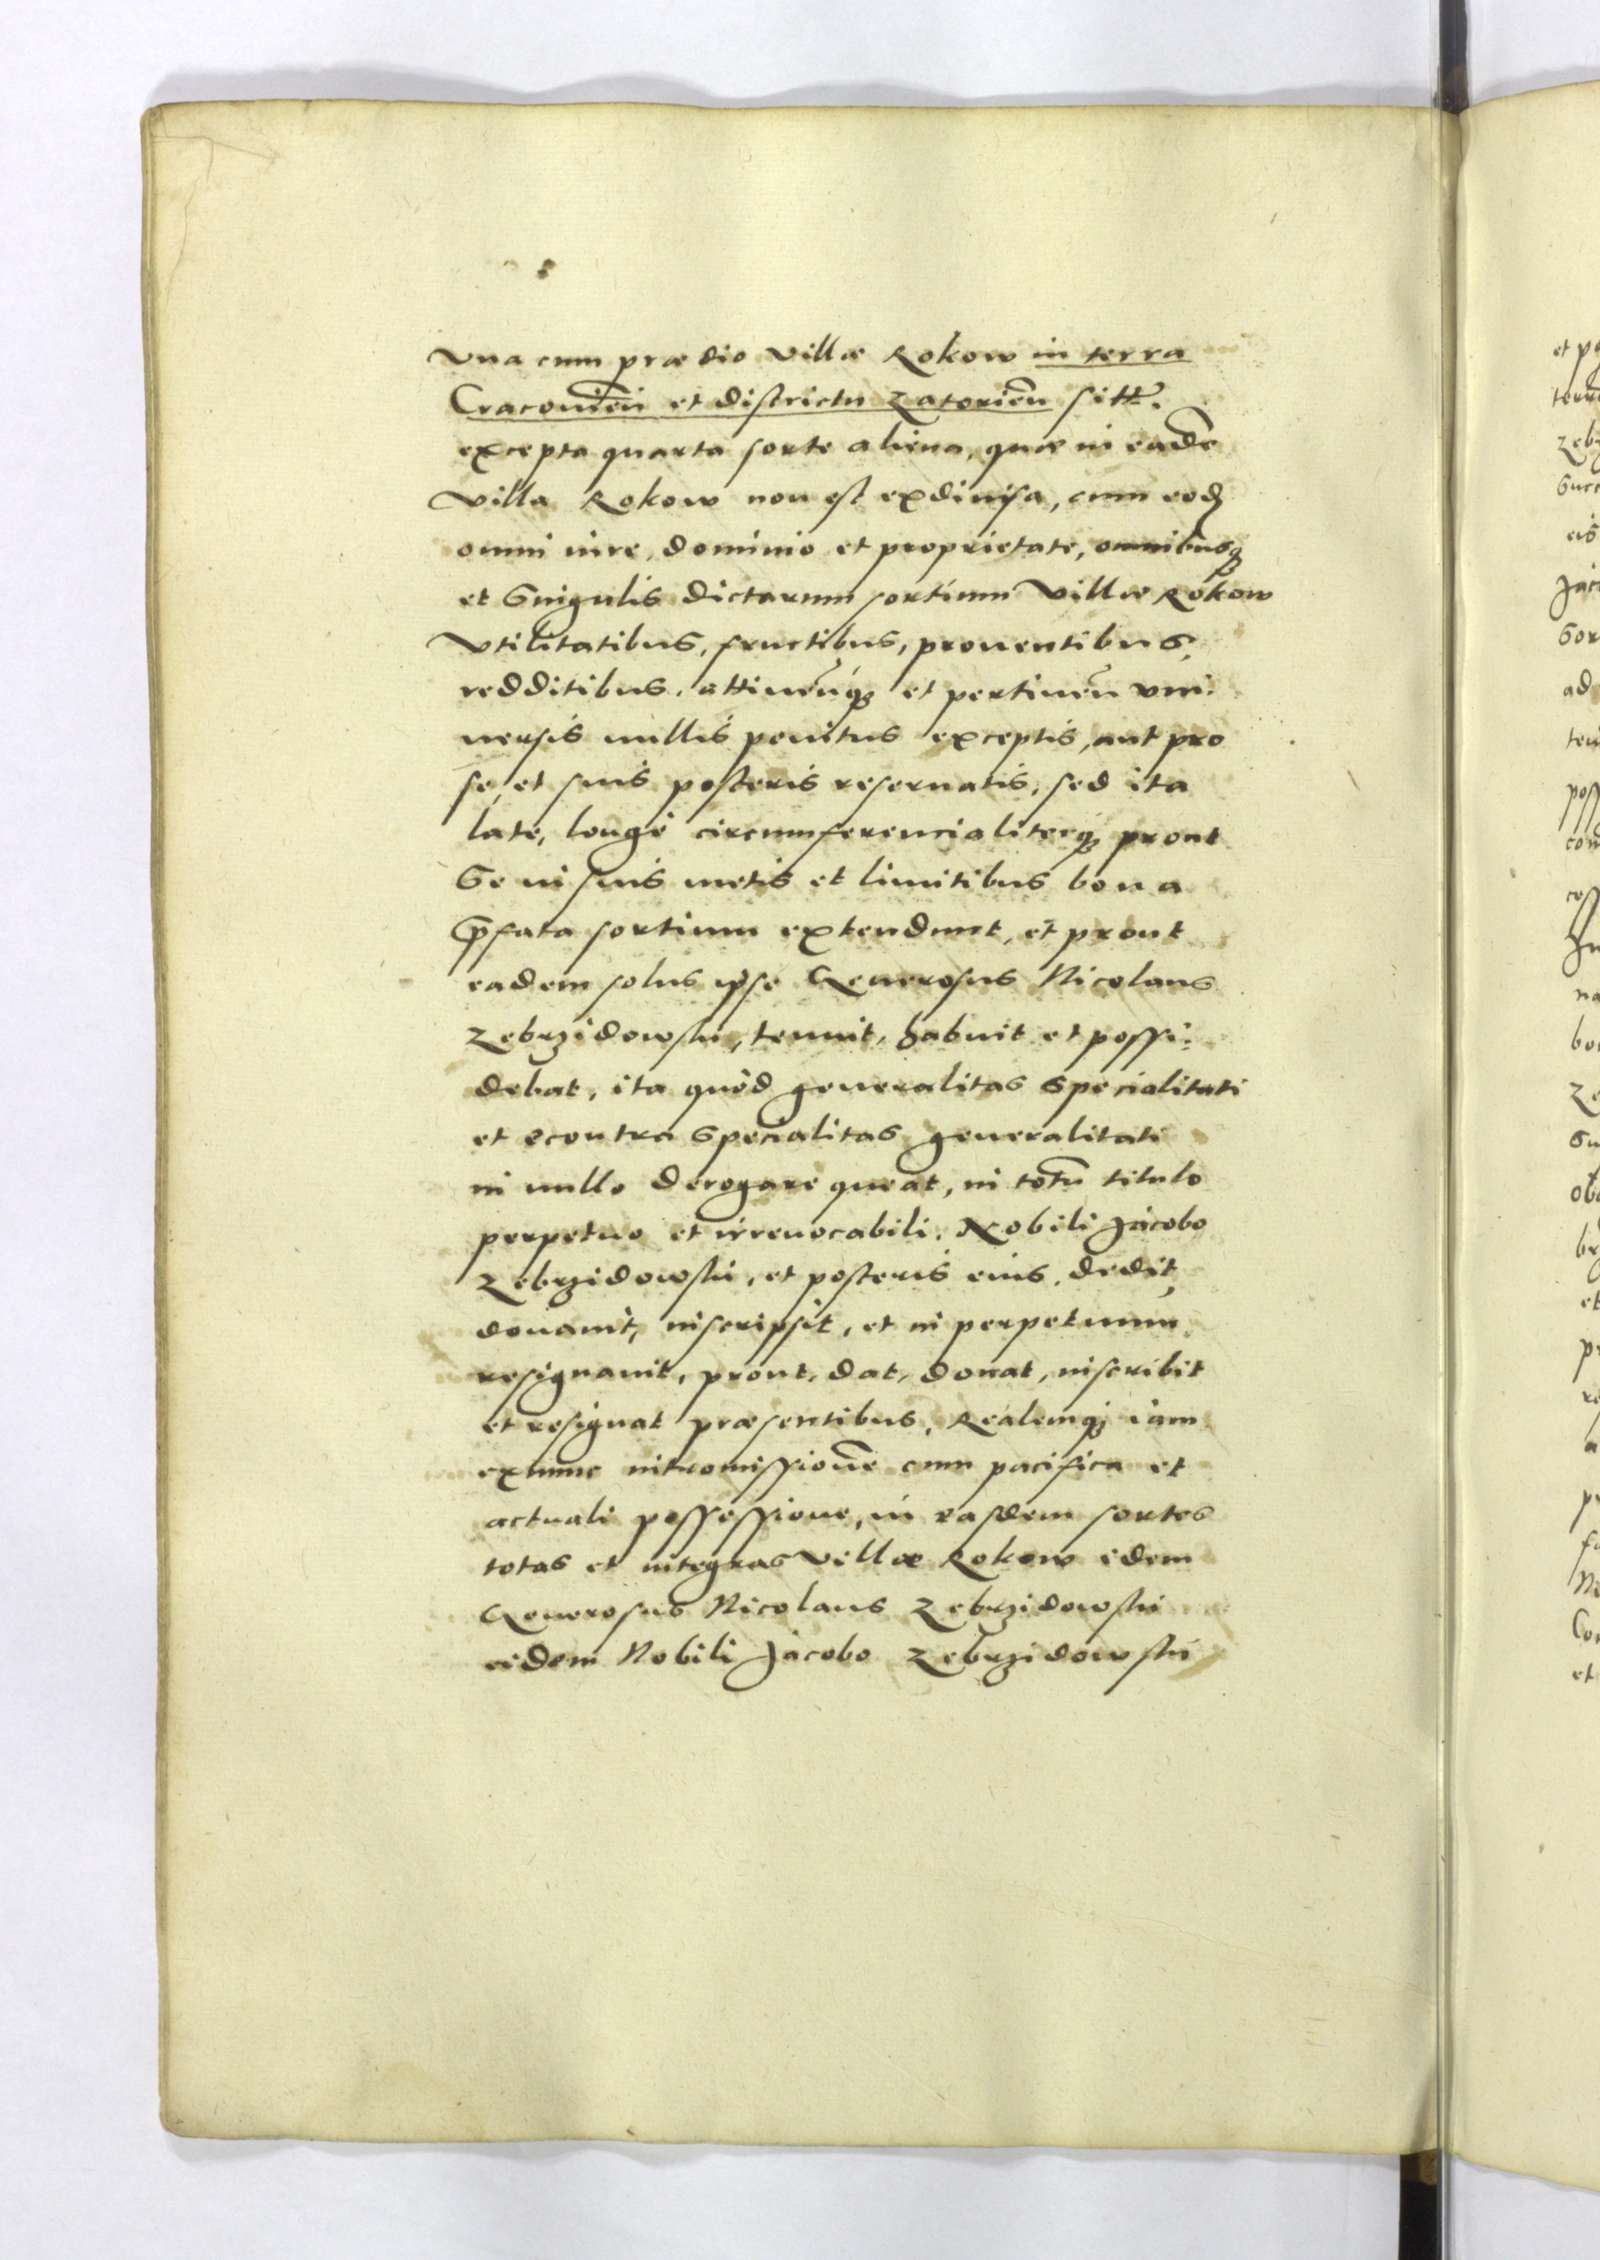 Vna cum prædio villæ Rokow in terra
Cracouien̄ et districtu Zatorien̄ sitt.
excepta quarta sorte aliena, quæ in eadē
villa Rokow non est exdiuisa, cum eod
omni iure, dominio et proprietate, omnibusq
et singulis dictarum sortium villæ Rokow
vtilitatibus, fructibus, prouentibus,
redditibus, attinen̄q et pertinen̄ vni:
uersis nullis penitus exceptis, aut pro
se, et suis posteris reseruatis, sed ita
late, longè circumferencialiterq prout
se in suis metis et limitibus bona
p̄fata sortium extendunt, et prout
eadem solus ipse Generosus Nicolaus
Zebrzidowski, tenuit, habuit et possi:
debat, ita quòd generalitas specialitati
et econtra specialitas generalitati
in nullo derogare queat, in totū titulo
perpetuo et irreuocabili, Nobili Jacobo
Zebrzidowski, et posteris eius, dedit,
donauit, inscripsit, et in perpetuum
resignauit, prout, dat, donat, inscribit
et resignat præsentibus, Realemq iam
extunc intromissionē cum pacifica et
actuali possessione, in easdem sortes
totas et integras villæ Rokow idem
Generosus Nicolaus Zebrzidowski
eidem Nobili Jacobo Zebrzidowski